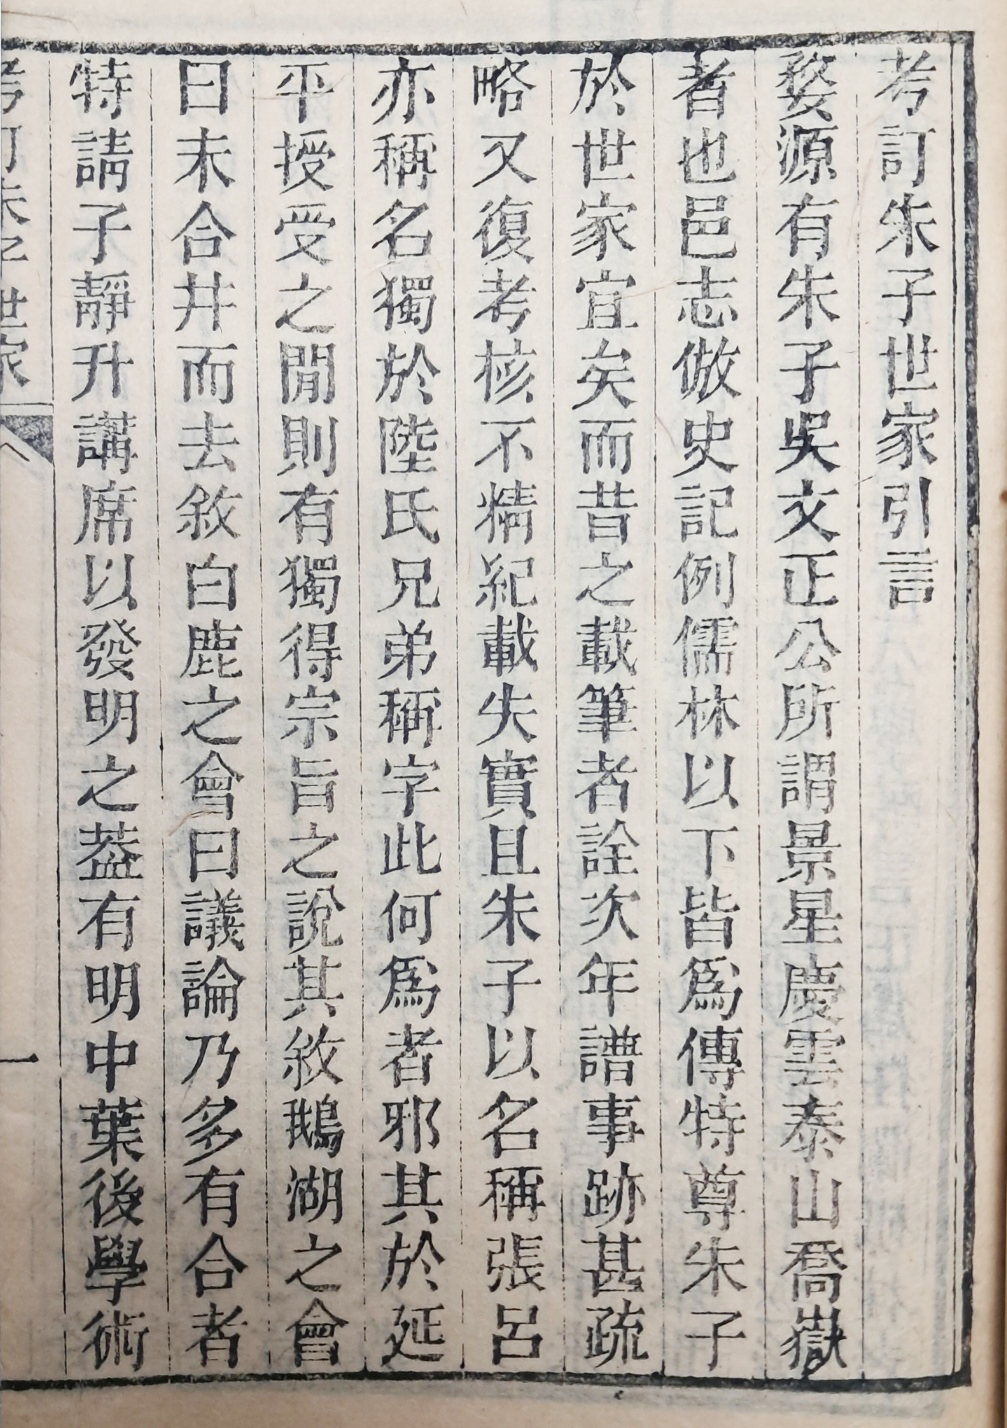 考訂朱子世家引言
婺源有朱子吳文正公所謂景星慶雲泰山喬嶽
者也邑志倣史記例儒林以下皆爲傳特尊朱子
於世家宜矣而昔之載筆者詮次年譜事跡甚疏
略又復考核不精紀載失實且朱子以名稱張呂
亦稱名獨於陸氏兄弟稱字此何爲者邪其於延
平授受之閒則有獨得宗旨之說其敘鵝湖之會
曰未合井而去敘白鹿之會曰議論乃多有合者
特請子靜升講席以發明之葢有明中葉後學術
考訂朱子世家
一